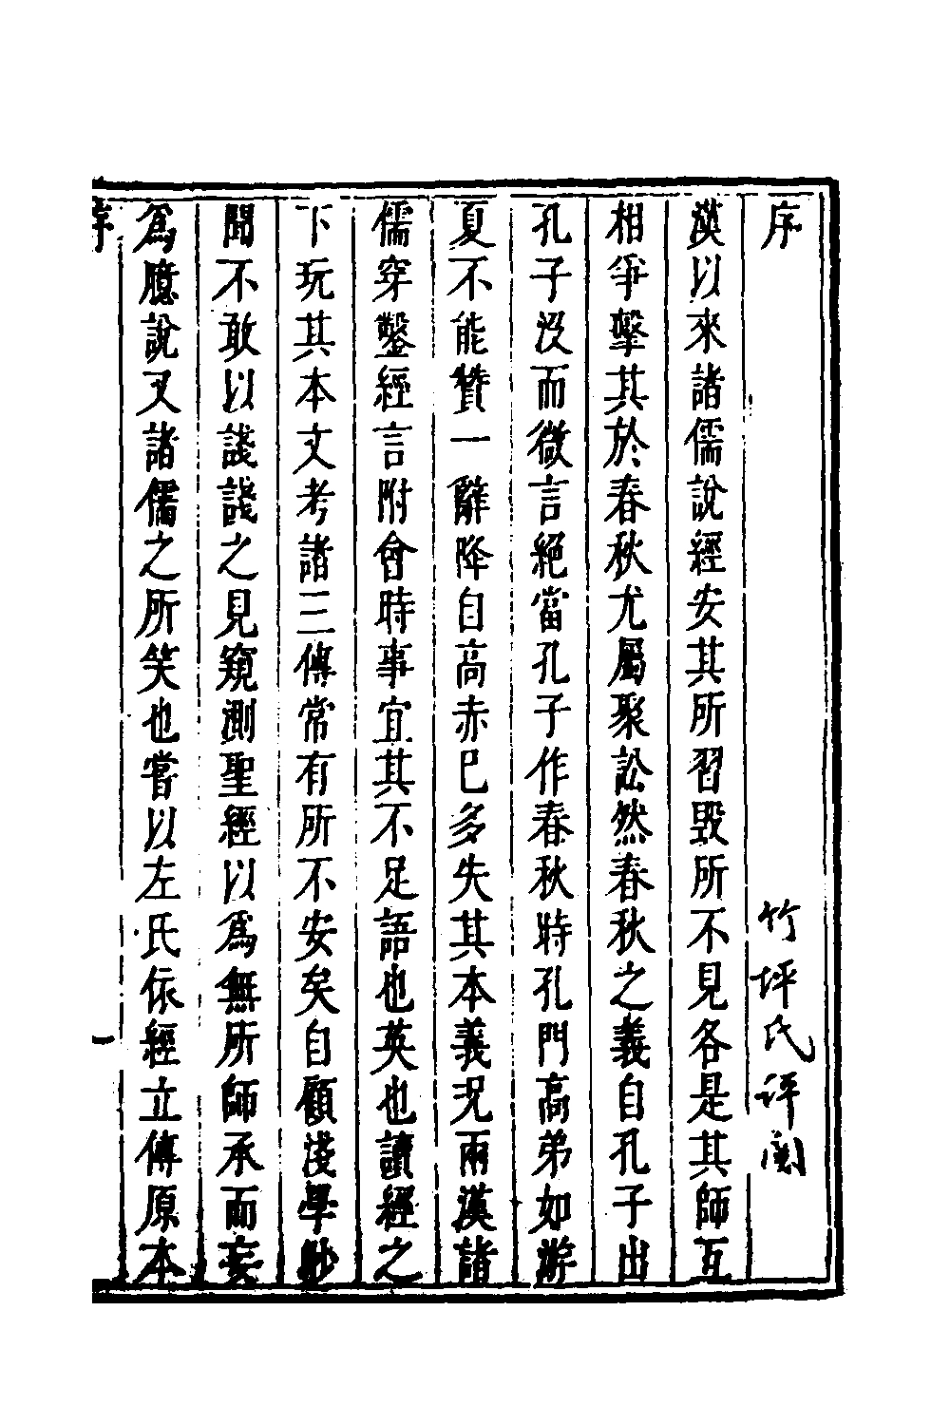 序 竹坪氏評閱
漢以來諸儒說經安其所習毀所不見各是其師互
相爭擊其於春秋尤屬聚訟然春秋之義自孔子出
孔子沒而微言絕當孔子作春秋特孔門高弟如游
夏不能贊一辭降自高赤巳多失其本義況兩漢諸
儒穿鑿經言附會時事宜其不足語也英也讀經之
下玩其本文考諸三傳常有所不安矣自顧淺學尠
聞不敢以諓諓之見窺測聖經以為無所師承而妄
為臆說又諸儒之所笑也嘗以左氏依經立傳原本
序 一